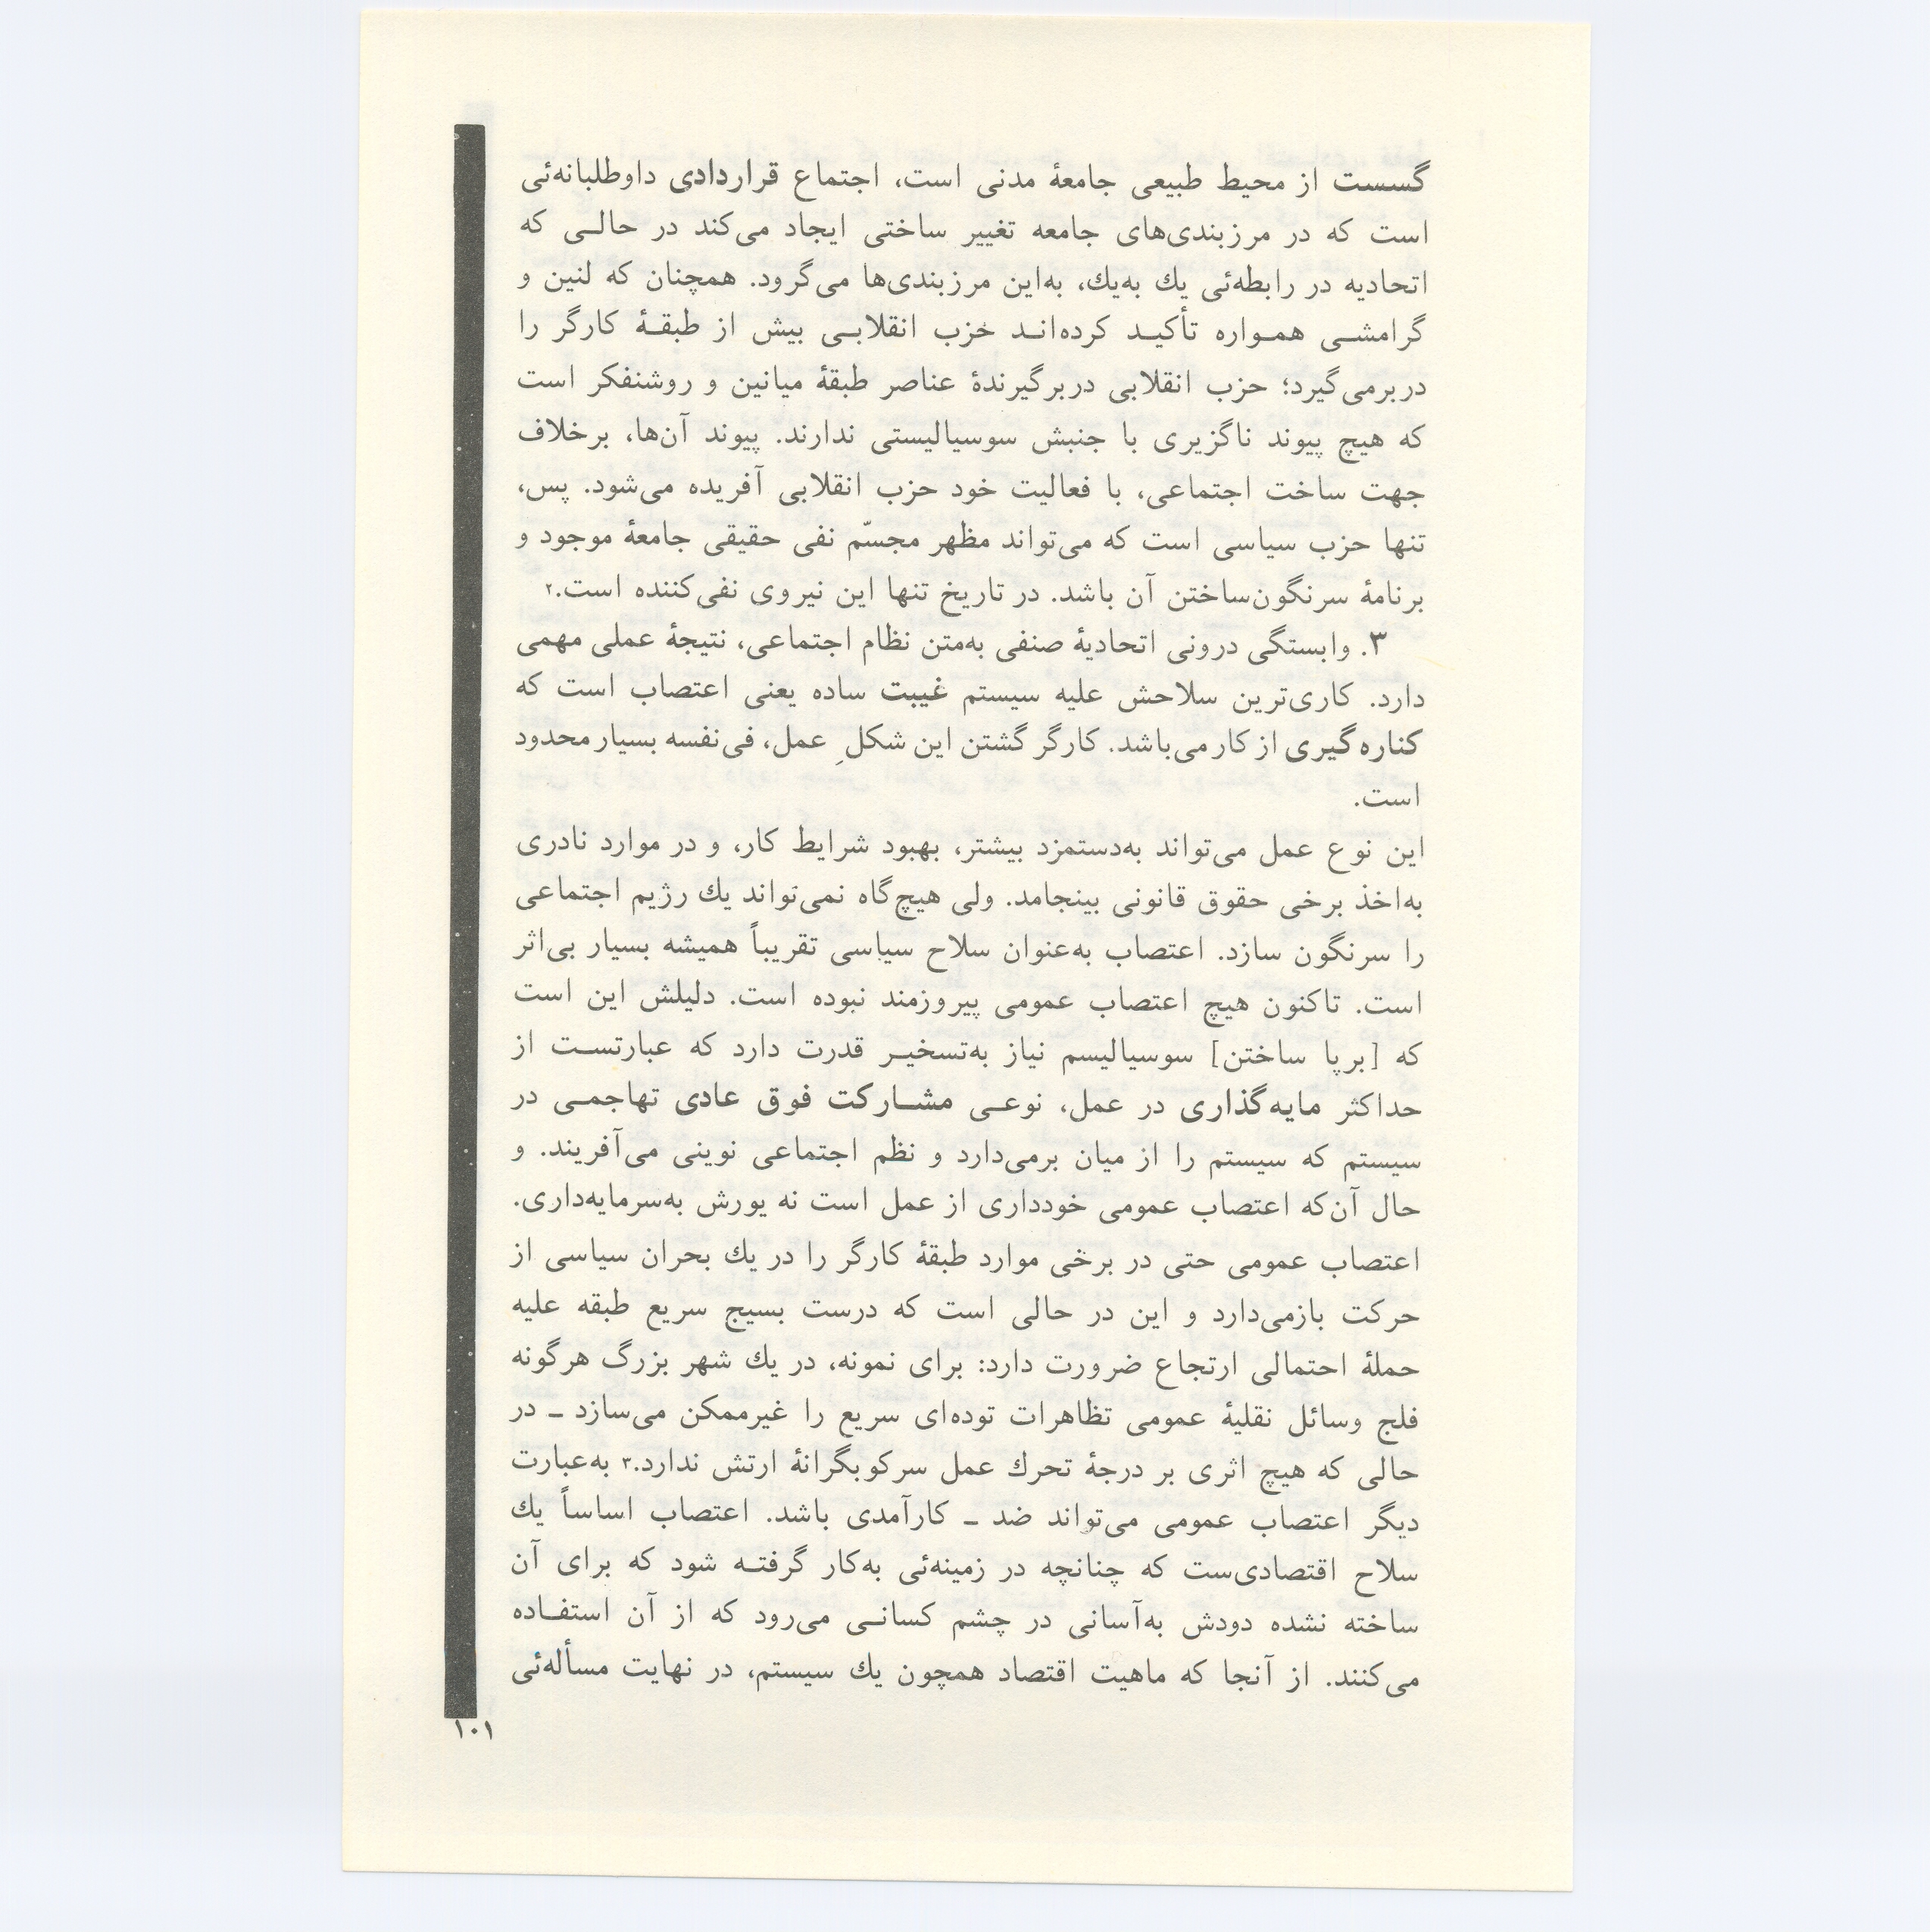 گسست از محیط طبیعی جامعهٔ مدنی است، اجتماع قراردادی داوطلبانه‌ئی
است که در مرزبندی‌های جامعه تغییر ساختی ایجاد می‌کند در حالـی که
اتحادیه در رابطه‌ئی یك به‌یك، به‌این مرزبندی‌ها می‌گرود. همچنان که لنین و
گرامشـی همـواره تأکیـد کرده‌انـد خزب انقلابـی بیش از طبقـهٔ کارگر را
دربرمی‌گیرد؛ حزب انقلابی دربرگیرندهٔ عناصر طبقهٔ میانین و روشنفکر است
که هیچ پیوند ناگزیری با جنبش سوسیالیستی ندارند. پیوند آن‌ها، برخلاف
جهت ساخت اجتماعی، با فعالیت خود حزب انقلابی آفریده می‌شود. پس،
تنها حزب سیاسی است که می‌تواند مظهر مجسّم نفی حقیقی جامعهٔ موجود و
برنامهٔ سرنگون‌ساختن آن باشد. در تاریخ تنها این نیروی نفی‌کننده است.۲
۳. وابستگی درونی اتحادیهٔ صنفی به‌متن نظام اجتماعی، نتیجهٔ عملی مهمی
دارد. کاری‌ترین سلاحش علیه سیستم غیبت ساده یعنی اعتصاب است که
کناره‌گیری از کار می‌باشد. کارگر گشتن این شکلِ عمل، فی‌نفسه بسیار محدود
است.
این نوع عمل می‌تواند به‌دستمزد بیشتر، بهبود شرایط کار، و در موارد نادری
به‌اخذ برخی حقوق قانونی بینجامد. ولی هیچ‌گاه نمی‌تواند یك رژیم اجتماعی
را سرنگون سازد. اعتصاب به‌عنوان سلاح سیاسی تقریباً همیشه بسیار بی‌اثر
است. تاکنون هیچ اعتصاب عمومی پیروزمند نبوده است. دلیلش این است
که [برپا ساختن] سوسیالیسم نیاز به‌تسخیـر قدرت دارد که عبارتسـت از
حداکثر مایه‌گذاری در عمل، نوعـی مشـارکت فوق عادی تهاجمـی در
سیستم که سیستم را از میان برمی‌دارد و نظم اجتماعی نوینی می‌آفریند. و
حال آن‌که اعتصاب عمومی خودداری از عمل است نه یورش به‌سرمایه‌داری.
اعتصاب عمومی حتی در برخی موارد طبقهٔ کارگر را در یك بحران سیاسی از
حرکت بازمی‌دارد و این در حالی است که درست بسیج سریع طبقه علیه
حملهٔ احتمالی ارتجاع ضرورت دارد: برای نمونه، در یك شهر بزرگ هرگونه
فلج وسائل نقلیهٔ عمومی تظاهرات توده‌ای سریع را غیرممکن می‌سازد ـ در
حالی که هیچ اثری بر درجهٔ تحرك عمل سرکوبگرانهٔ ارتش ندارد.۳ به‌عبارت
دیگر اعتصاب عمومی می‌تواند ضد ـ کارآمدی باشد. اعتصاب اساساً یك
سلاح اقتصادی‌ست که چنانچه در زمینه‌ئی به‌کار گرفتـه شود که برای آن
ساخته نشده دودش به‌آسانی در چشم کسانـی می‌رود که از آن استفـاده
می‌کنند. از آنجا که ماهیت اقتصاد همچون یك سیستم، در نهایت مسأله‌ئی
۱۰۱